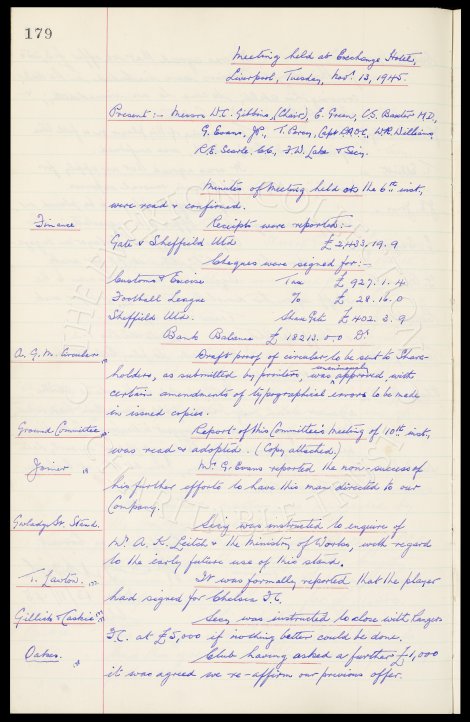 179
Meeting held at Exchange Hotel,
Liverpool, Tuesday, Nov. 13, 1945
Present :- Messrs W.C. Gibbins, (Chair), E. Green, C.S. Baxter M.D,
G. Evans, J.P., T. Percy, Capt.
W.R. Williams,
R.E. Searle, C.C., F.W. Lake & Secy.
Minutes of Meeting held on the 6th inst,
were read & confirmed.
Finance
Receipts were reported:-
Gate v Sheffield Utd £2,433.19.9
Cheques were signed for:-
Customs & Excise Tax £927.1.4
Football League % £28.16.0
Sheffield Utd. Share Gate £402.3.9
Bank Balance £18213.0.0 Dr
A.G.M. Circular
Draft proof of circular to be sent to Share-
holders, as submitted by printers, was unanimously approved, with
certain amendments of typographical errors to be made
in issued copies.
Ground Committee
Report of this Committee's meeting of 10th inst,
was read & adopted. (Copy attached.)
Joiner
Mr G. Evans reported the non-success of
his further efforts to have this man directed to our
Company.
Gwladys St. Stand.
Secy was instructed to enquire of
Mr A. K. Leitch & the Ministry of Works, with regard
to the early future use of this stand.
T. Lawton.
It was formally reported that the player
had signed for Chelsea F.C.
Gillick & Caskie
Secy was instructed to close with Rangers
F.C. at £5,000 if nothing better could be done.
Oakes.
Club having asked a further £1,000
it was agreed we re-affirm our previous offer.